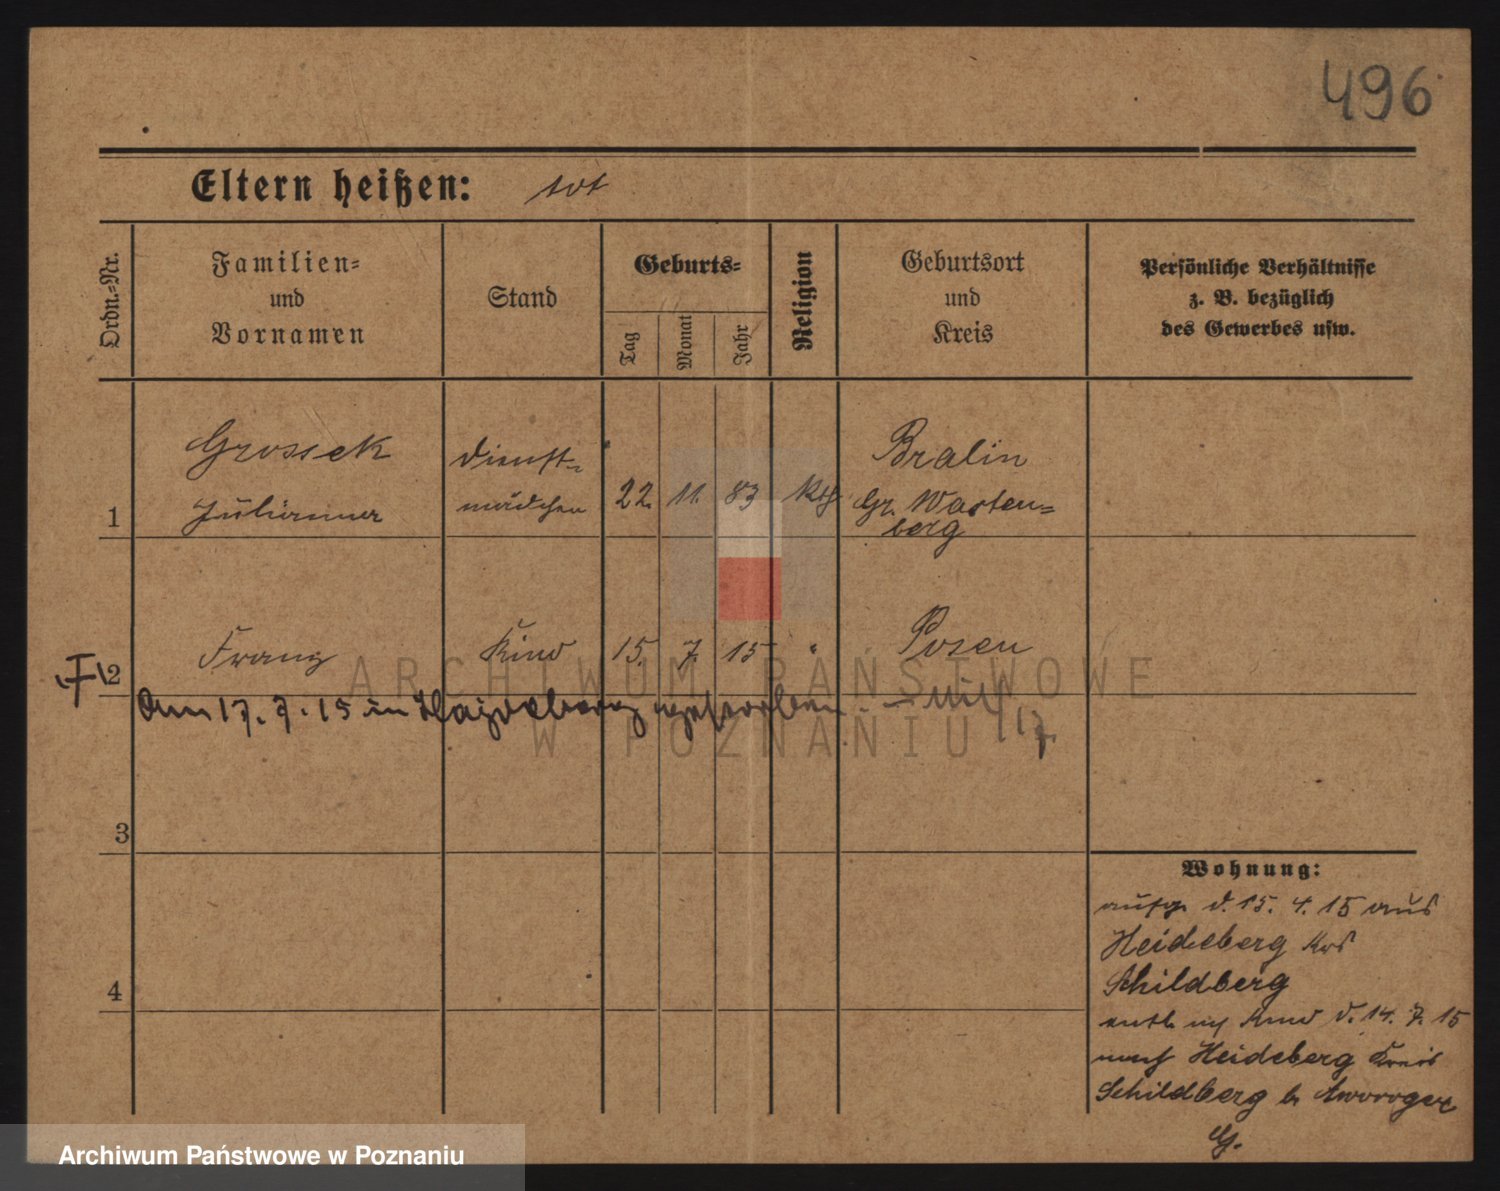 496
Eltern heißen: tot
Ordn.-Nr.
Familien- und Vornamen
Stand
Geburts-
Tag
Monat
Jahr
Religion
Geburtsort und Kreis
Persönliche Verhältnisse z. B. bezüglich des Gewerbes usw.
1
Grossek
Julianna
Dienst-
mädchen
22. 11. 83
Kth
Bralin
Gr. Warten-
berg
2
Franz
Kind
15. 7. 15
"
Posen
Am 17. 7. 15 in gestorben.
17.
3
4
Wohnung:
d. 15. 4. 15 aus
Heideberg Krs
Schildberg
entl. Kind d. 14. 7. 15
nach Heideberg Kreis
Schildberg b.
G.
ARCHIWUM PAŃSTWOWE
W POZNANIU
Archiwum Państwowe w Poznaniu